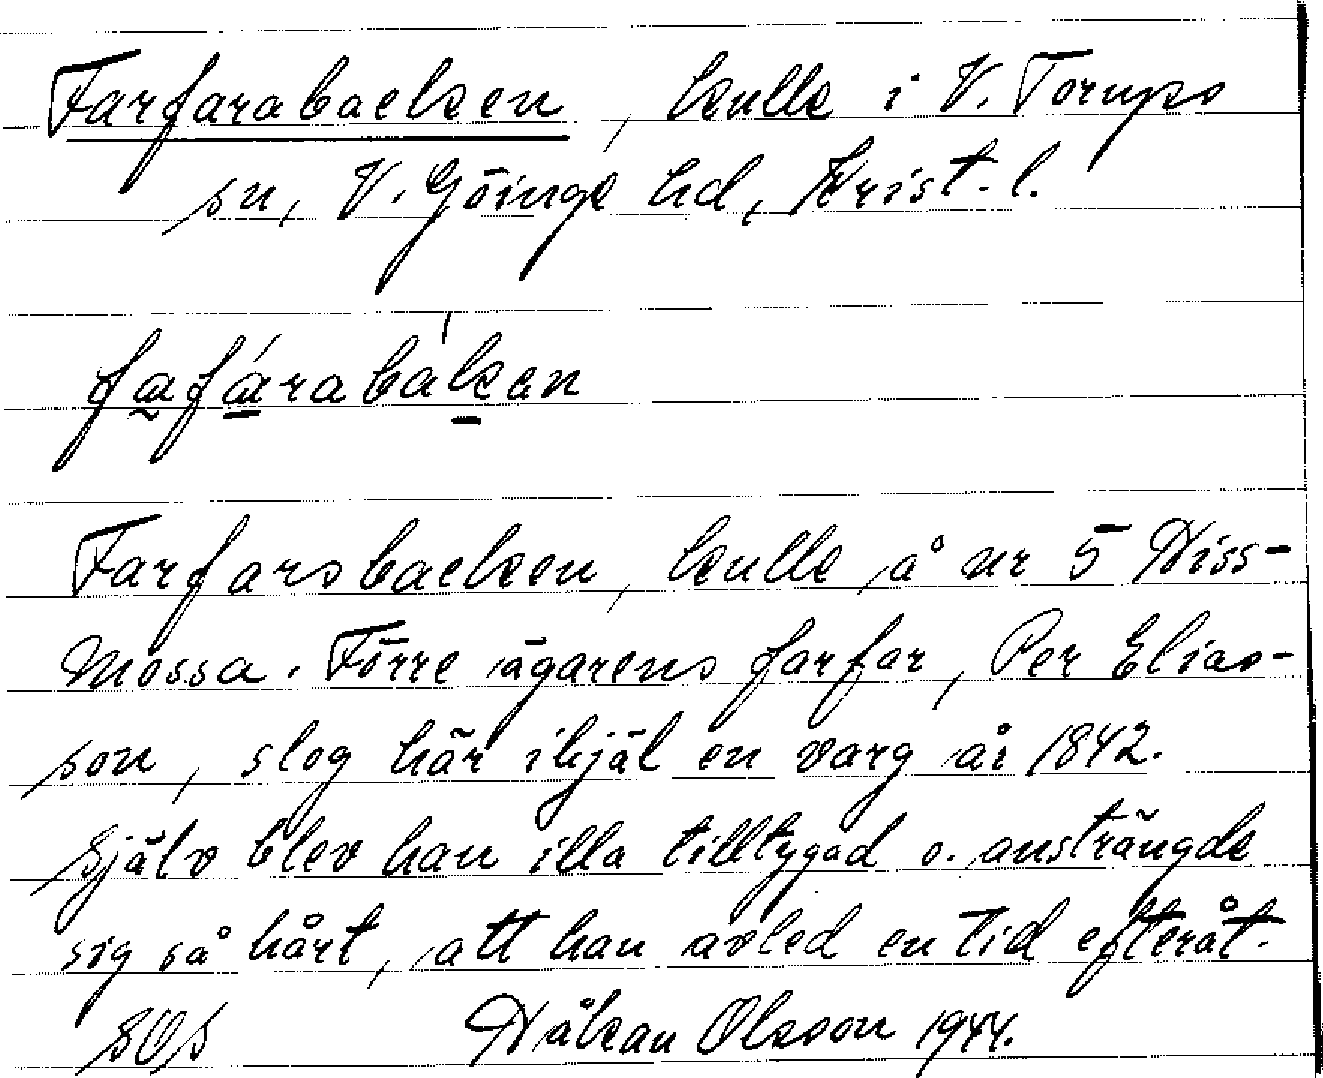 Farfarabacken, kulle i V. Torups
sn, V. Göinge hd, Krist. l.
fafárabákan
Farfarsbacken, kulle å nr 5 Hiss-
mossa. Förre ägarens farfar, Per Elias-
son, slog här ihjäl en varg år 1842.
Själv blev han illa tilltygad o. ansträngde
sig så hårt, att han avled en tid efteråt.
SOS Håkan Olsson 1944.